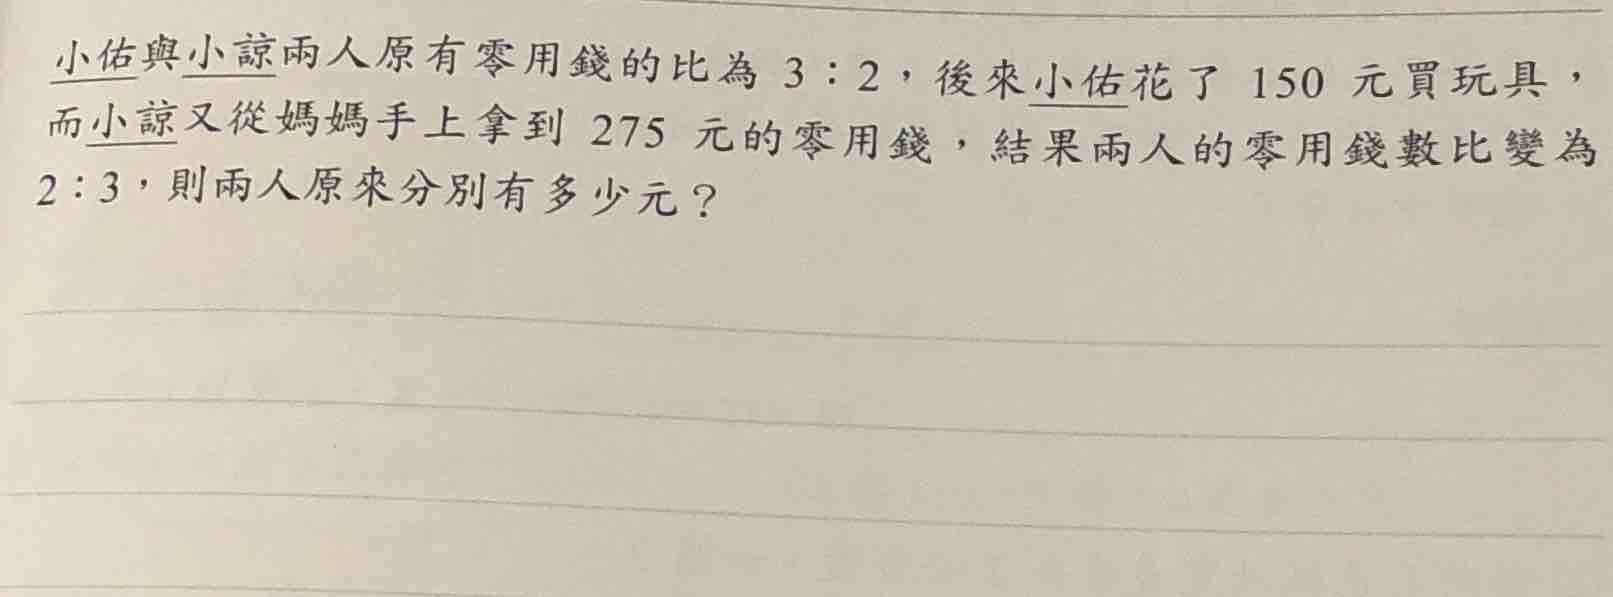 小佑與小諒兩人原有零用錢的比為 3：2，後來小佑花了 150 元買玩具，
而小諒又從媽媽手上拿到 275 元的零用錢，結果兩人的零用錢數比變為
2：3，則兩人原來分別有多少元？